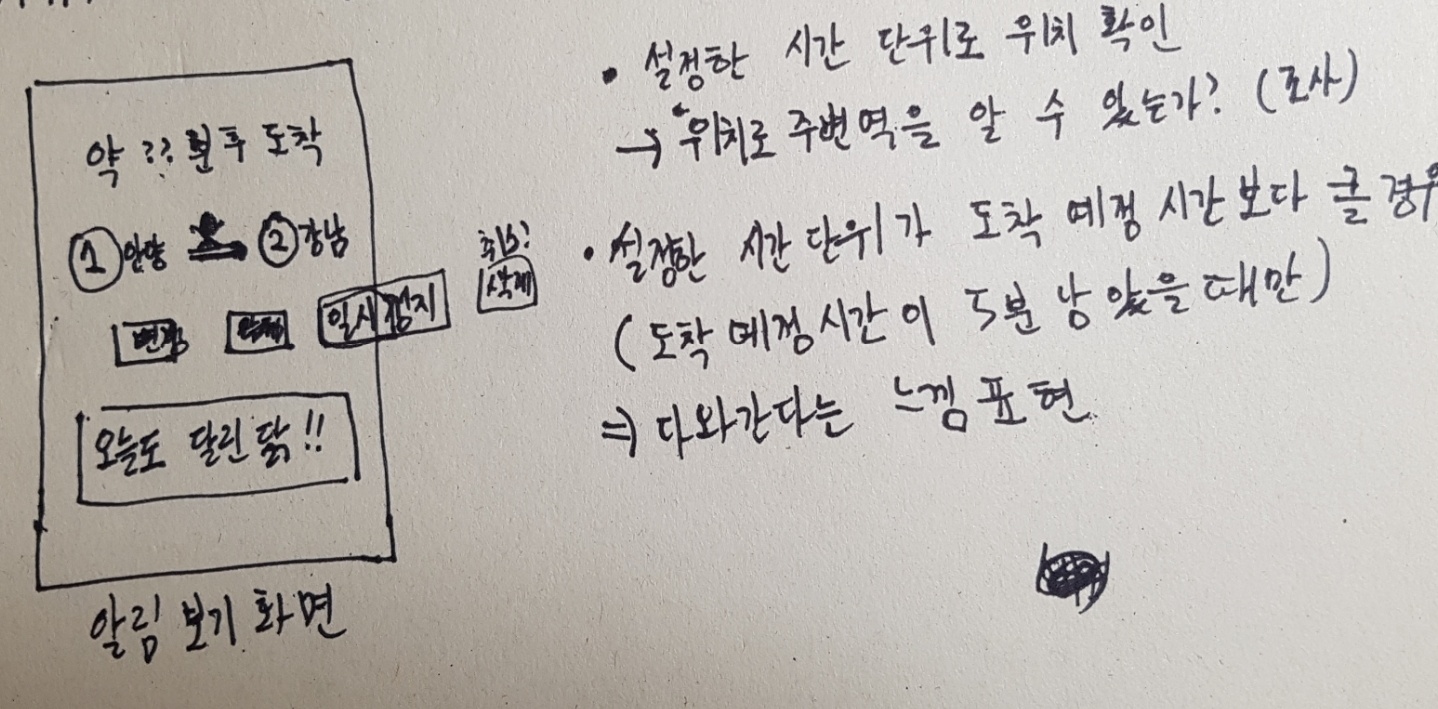 약 ?? 분 후 도착
① 안양 → ② 강남
일시 정지
취소?
삭제
오늘도 달린 닭!!
알림 보기 화면
• 설정한 시간 단위로 위치 확인
→ 위치로 주변역을 알 수 있는가? (조사)
• 설정한 시간 단위가 도착 예정 시간 보다 클 경우
(도착 예정 시간이 5분 남았을 때만)
⇒ 다와간다는 느낌 표현